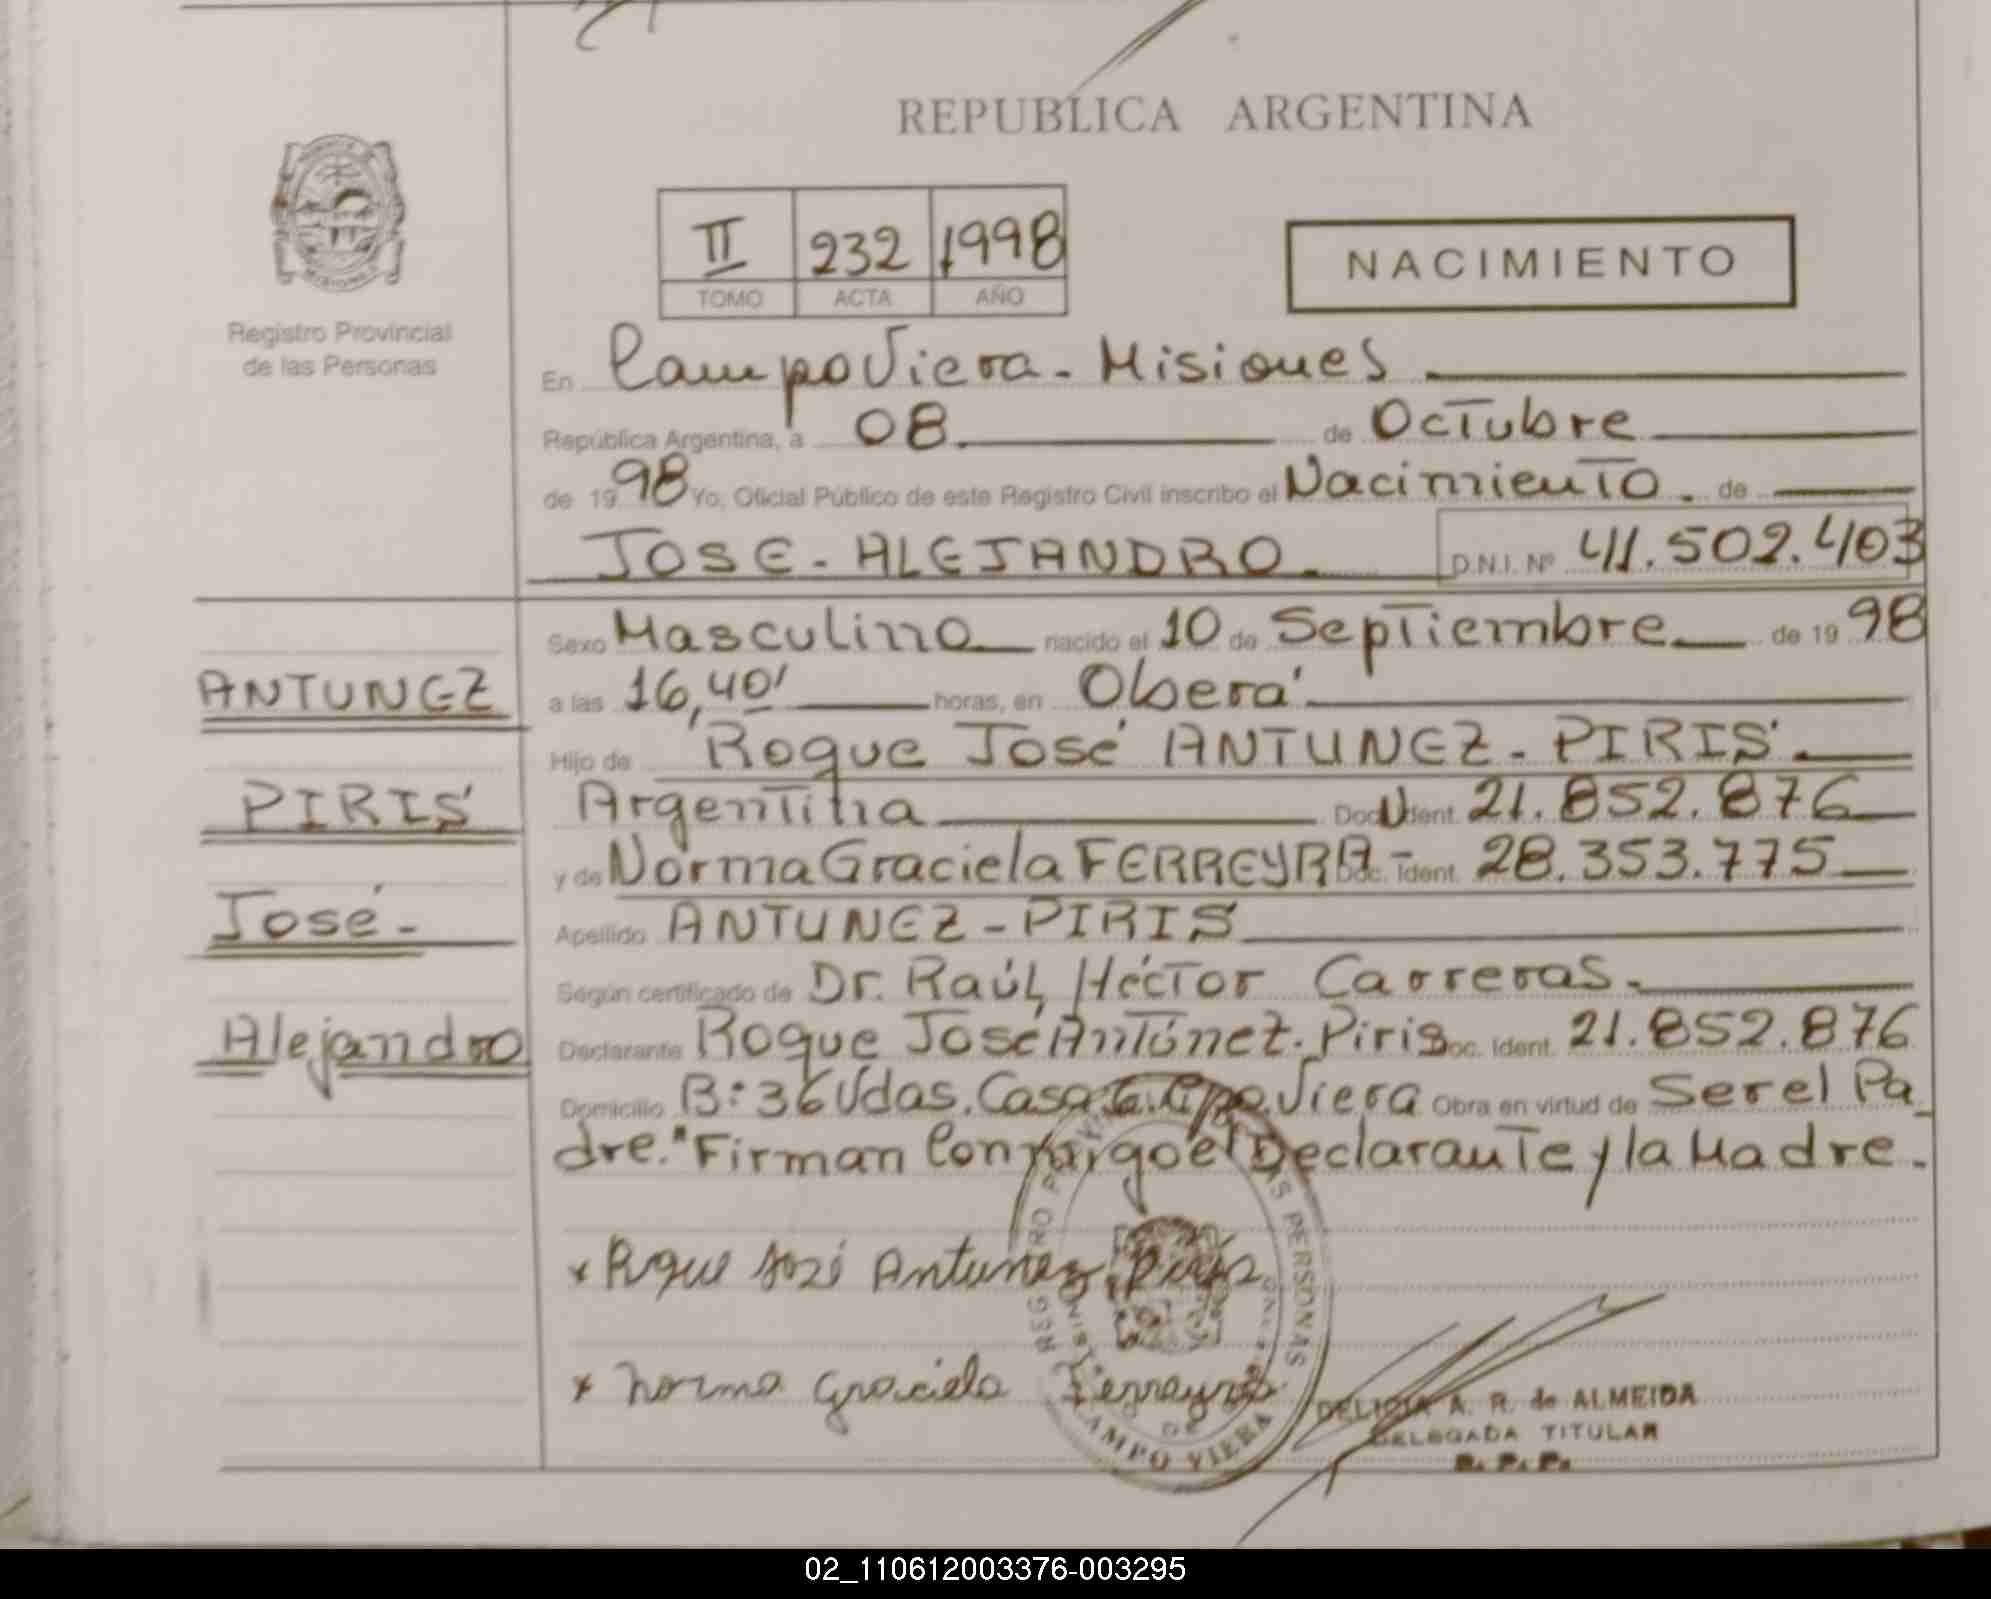 REPUBLICA ARGENTINA
II 232 1998
TOMO ACTA AÑO
NACIMIENTO
Registro Provincial
de las Personas
En Campo Viera - Misiones
República Argentina, a 08. de Octubre
de 1998 Yo, Oficial Público de este Registro Civil inscribo el Nacimiento. de
JOSE - ALEJANDRO. D.N.I. Nº 41.502.403
ANTUNEZ
PIRIS
José -
Alejandro
Sexo Masculino nacido el 10 de Septiembre de 1998
a las 16,40' horas, en Oberá
Hijo de Roque José ANTUNEZ - PIRIS.
Argentina Doc. Ident. 21.852.876
y de Norma Graciela FERREYRA - Doc. Ident. 28.353.775
Apellido ANTUNEZ - PIRIS
Según certificado de Dr. Raúl Héctor Carreras.
Declarante Roque José Antúnez. Piris Doc. Ident. 21.852.876
Domicilio B: 36 Vdas. Casa 6. Cpo. Viera Obra en virtud de Ser el Pa_
dre." Firman Conmigo el Declarante y la Madre.
x Roque José Antunez Piris
x Norma Graciela Ferreyra
DELICIA A. R. de ALMEIDA
DELEGADA TITULAR
R. P. P.
CAMPO VIERA
02_110612003376-003295